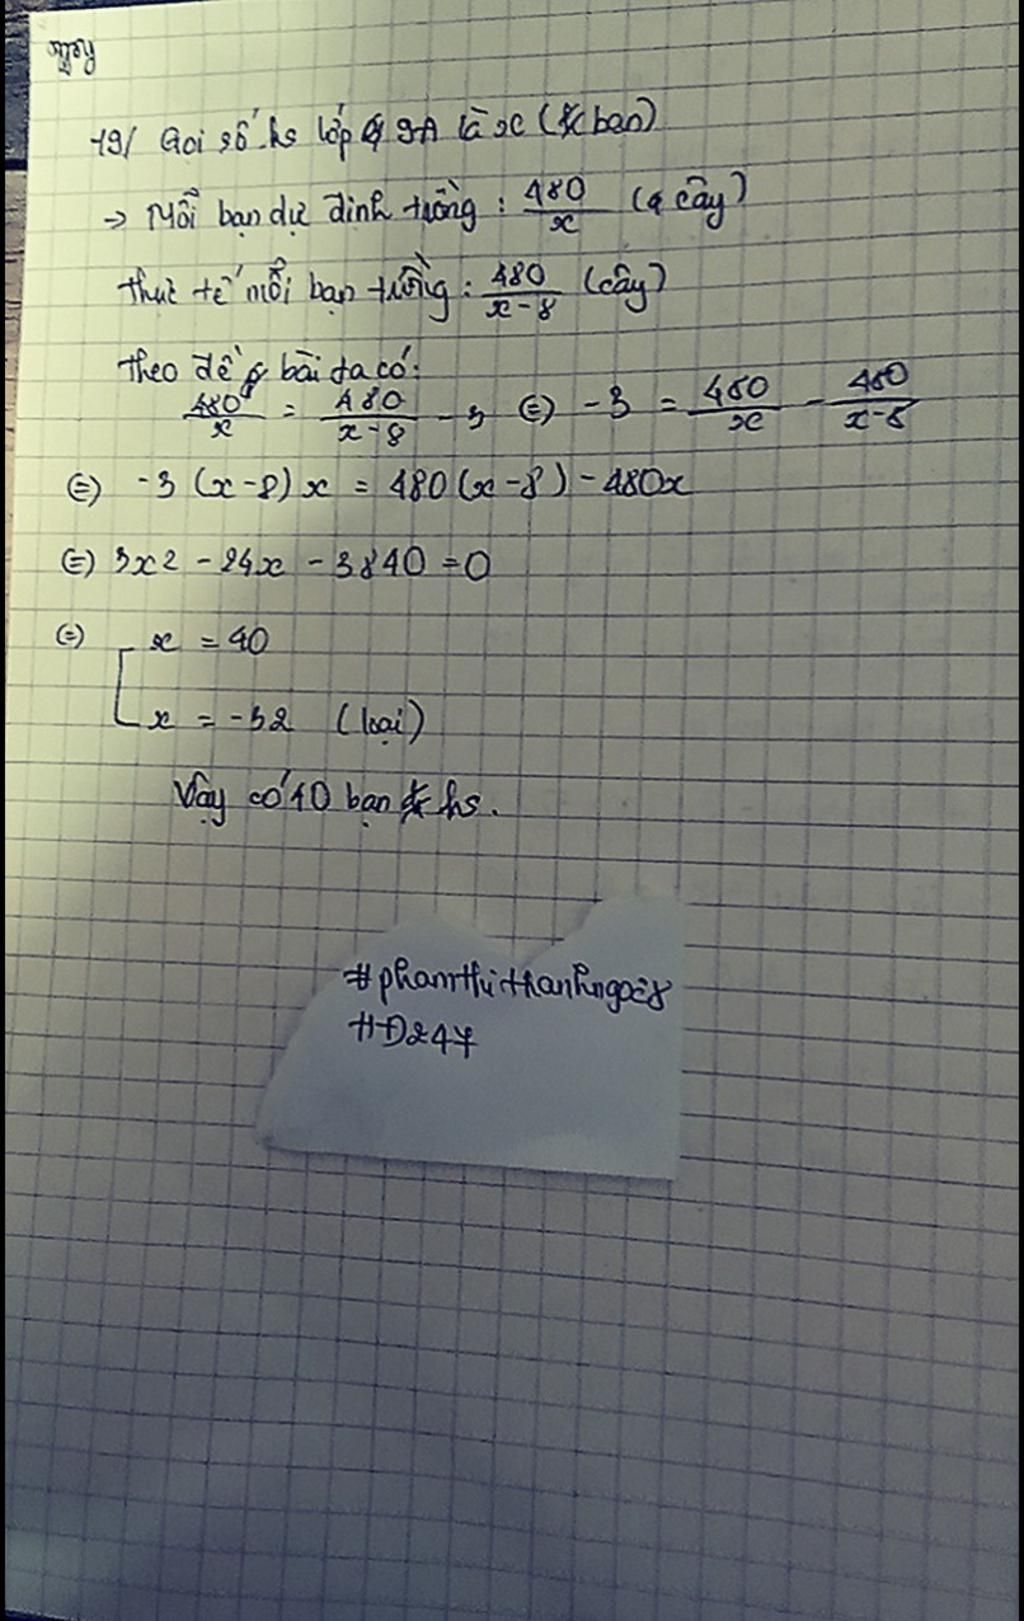 19/ Gọi số hs lớp 9A là x (bạn)
→ Mỗi bạn dự định trồng: 480/x (cây)
thực tế mỗi bạn trồng: 480/x-8 (cây)
theo đề bài ta có:
480/x = 480/x-8 - 3 (=) -3 = 480/x - 480/x-8
(=) -3 (x-8) x = 480(x-8) - 480x
(=) 3x2 - 24x - 3840 = 0
(=) x = 40
x = -32 (loại)
Vậy có 40 bạn hs.
#phamthithanhngoc8
HĐ247